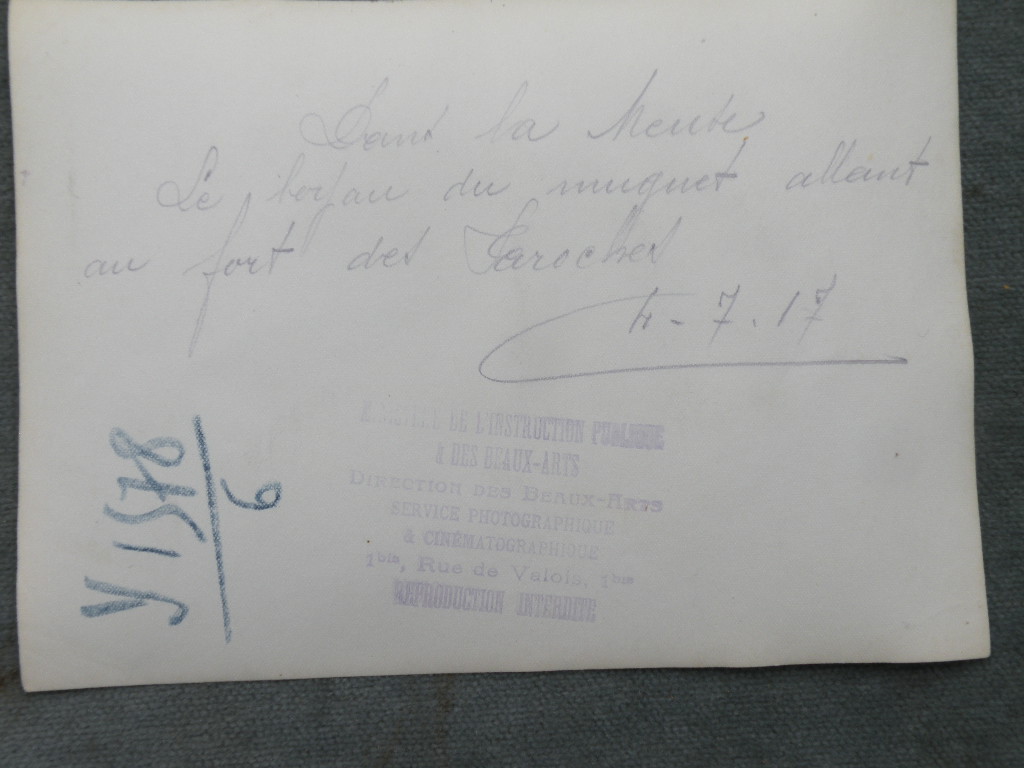 Dans la Meuse
Le boyau du muguet allant
au fort des Paroches
4-7.17
MINISTÈRE DE L'INSTRUCTION PUBLIQUE
& DES BEAUX-ARTS
DIRECTION DES BEAUX-ARTS
SERVICE PHOTOGRAPHIQUE
& CINÉMATOGRAPHIQUE
1bis, Rue de Valois, 1bis
REPRODUCTION INTERDITE
V1578
6